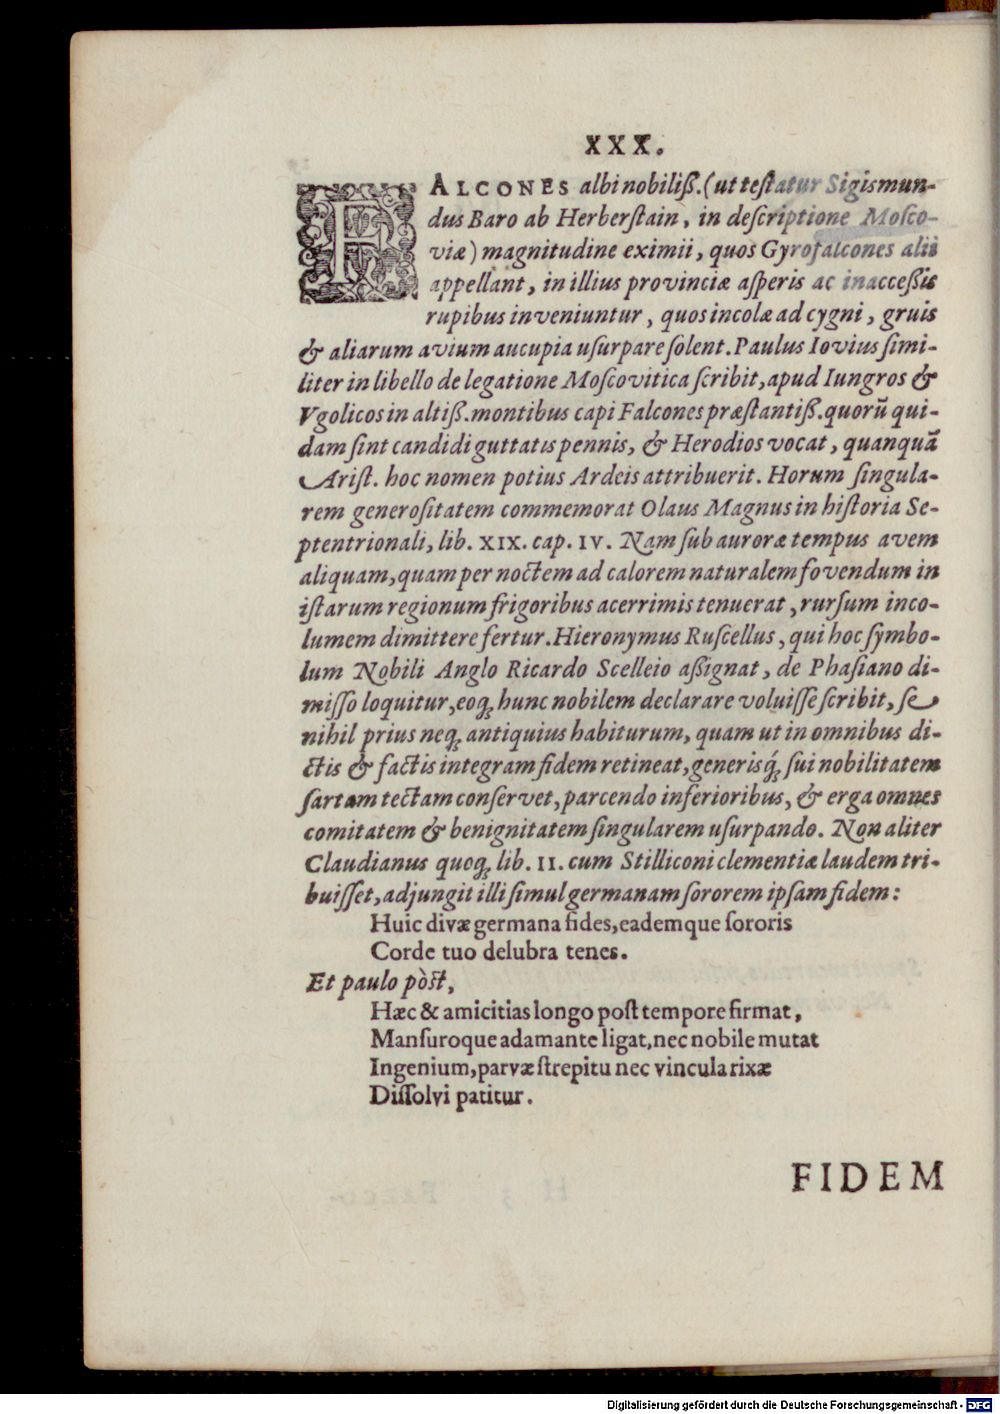 XXX.
FALCONES albi nobiliß. (ut teſtatur Sigismun-
dus Baro ab Herberſtain, in deſcriptione Moſco-
viæ) magnitudine eximii, quos Gyrofalcones alii
appellant, in illius provinciæ aſperis ac inacceßis
rupibus inveniuntur, quos incolæ ad cygni, gruis
& aliarum avium aucupia uſurpare ſolent. Paulus Iovius ſimi-
liter in libello de legatione Moſcovitica ſcribit, apud Iungros &
Vgolicos in altiß. montibus capi Falcones præſtantiß. quorũ qui-
dam ſint candidi guttatis pennis, & Herodios vocat, quanquã
Ariſt. hoc nomen potius Ardeis attribuerit. Horum ſingula-
rem generoſitatem commemorat Olaus Magnus in hiſtoria Se-
ptentrionali, lib. XIX. cap. IV. Nam ſub auroræ tempus avem
aliquam, quam per noctem ad calorem naturalem fovendum in
iſtarum regionum frigoribus acerrimis tenuerat, rurſum inco-
lumem dimittere fertur. Hieronymus Ruſcellus, qui hoc ſymbo-
lum Nobili Anglo Ricardo Scelleio aßignat, de Phaſiano di-
miſſo loquitur, eoq; hunc nobilem declarare voluiſſe ſcribit, ſe
nihil prius neq; antiquius habiturum, quam ut in omnibus di-
ctis & factis integram fidem retineat, generisq́; ſui nobilitatem
ſartam tectam conſervet, parcendo inferioribus, & erga omnes
comitatem & benignitatem ſingularem uſurpando. Non aliter
Claudianus quoq; lib. II. cum Stilliconi clementiæ laudem tri-
buiſſet, adjungit illi ſimul germanam ſororem ipſam fidem:
Huic divæ germana fides, eademque ſororis
Corde tuo delubra tenes.
Et paulo pòſt,
Hæc & amicitias longo poſt tempore firmat,
Manſuroque adamante ligat, nec nobile mutat
Ingenium, parvæ ſtrepitu nec vincula rixæ
Diſſolvi patitur.
FIDEM
Digitalisierung gefördert durch die Deutsche Forschungsgemeinschaft - DFG